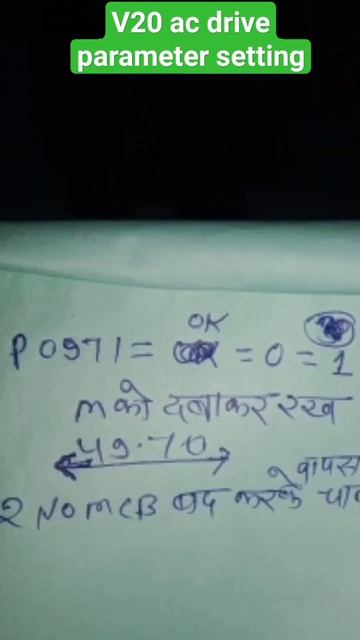 V20 ac drive
parameter setting
OK
P0971 = = 0 = 1
m को दबाकर रख
49.70
वापस
2 NO MCB बाद करके